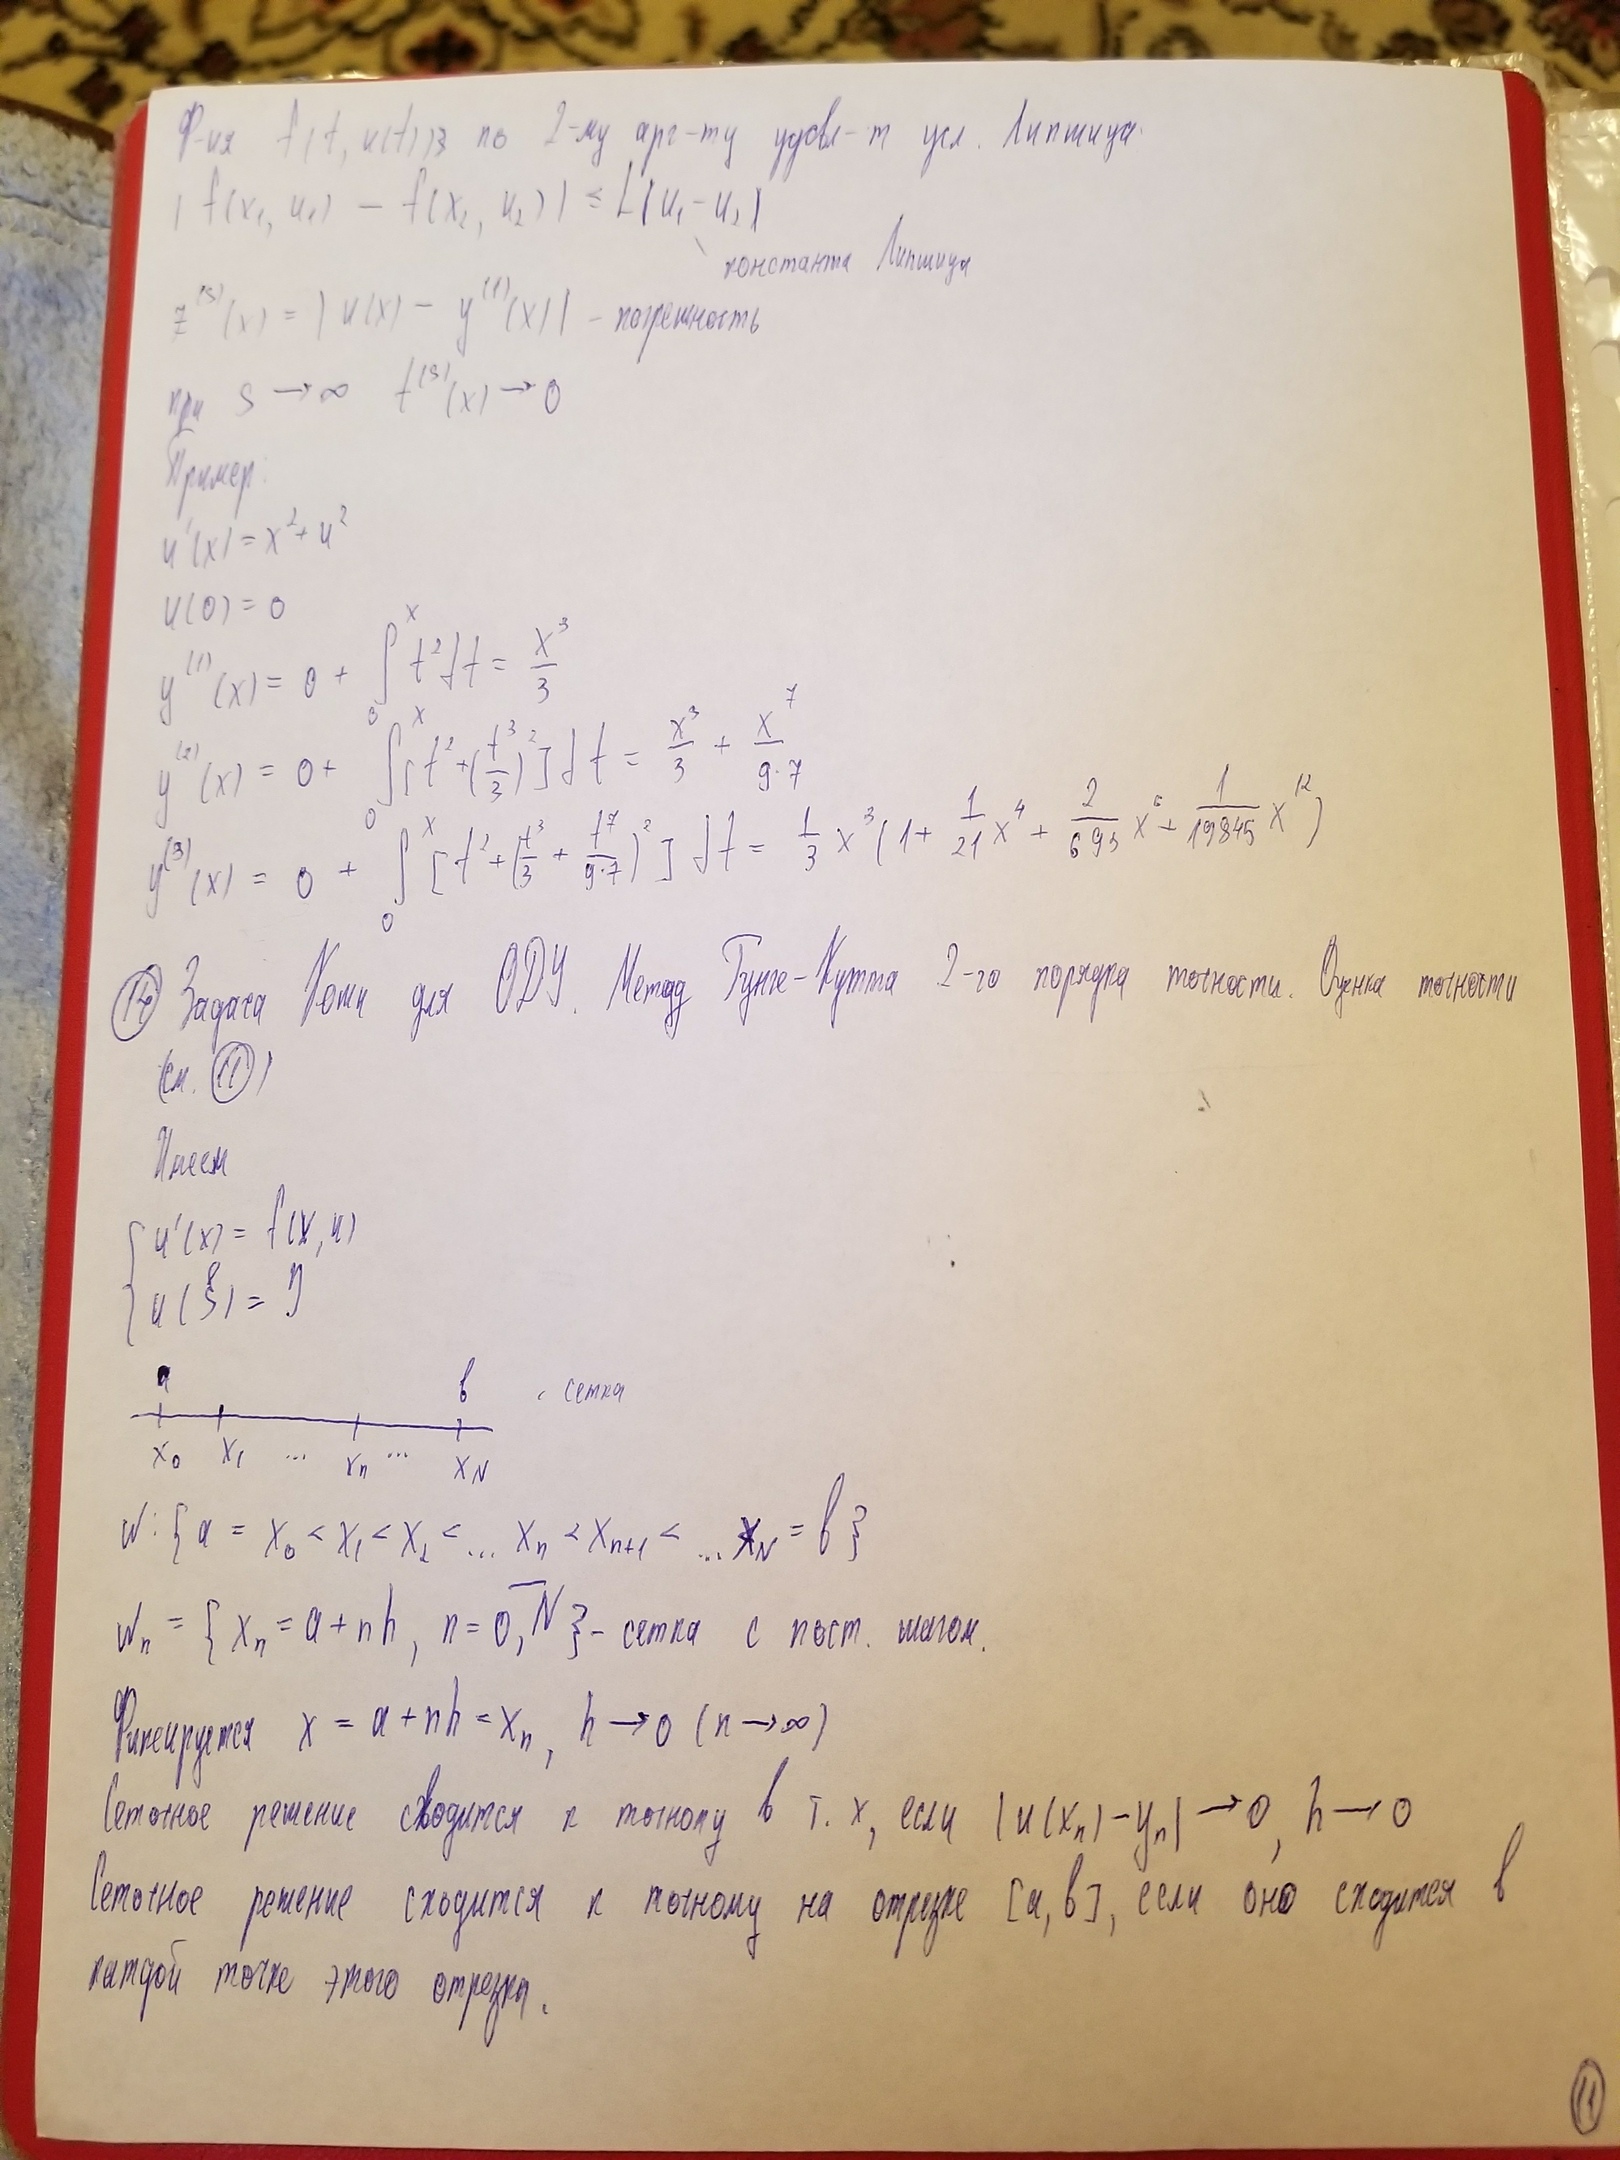 Ф-ия f(t, u(t)) по 2-му арг-ту удовл-т усл. Липшица
|f(x₁, u₁) − f(x₂, u₂)| ≤ L|u₁ − u₂|
константа Липшица
z⁽ˢ⁾(x) = |u(x) − y⁽¹⁾(x)| - погрешность
при S → ∞ t⁽ˢ⁾(x) → 0
Пример:
u'(x) = x² + u²
u(0) = 0
y⁽¹⁾(x) = 0 + ∫₀ˣ t² dt = x³/3
y⁽²⁾(x) = 0 + ∫₀ˣ [t² + (t³/3)²] dt = x³/3 + x⁷/(9·7)
y⁽³⁾(x) = 0 + ∫₀ˣ [t² + (t³/3 + t⁷/(9·7))²] dt = 1/3 x³ (1 + 1/21 x⁴ + 2/693 x + 1/19845 x¹²)
Задача Коши для ОДУ. Метод Рунге-Кутта 2-го порядка точности. Оценка точности
(см. 11)
Имеем
{ u'(x) = f(x, u)
{ u(ξ) = η
a b сетка
x₀ x₁ ... xₙ ... x_N
W: {a = x₀ < x₁ < x₂ < ... xₙ < xₙ₊₁ < ... x_N = b}
Wₙ = {xₙ = a + nh, n = 0,N̅} - сетка с пост. шагом.
Фиксируется x = a + nh = xₙ, h → 0 (n → ∞)
Сеточное решение сходится к точному в т. x, если |u(xₙ) − yₙ| → 0, h → 0
Сеточное решение сходится к точному на отрезке [a, b], если оно сходится в
каждой точке этого отрезка.
11